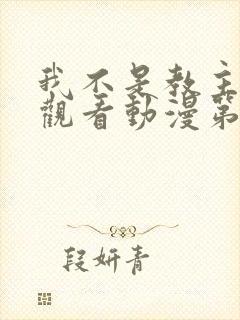 我不是教主
觀看動漫第
段妍青